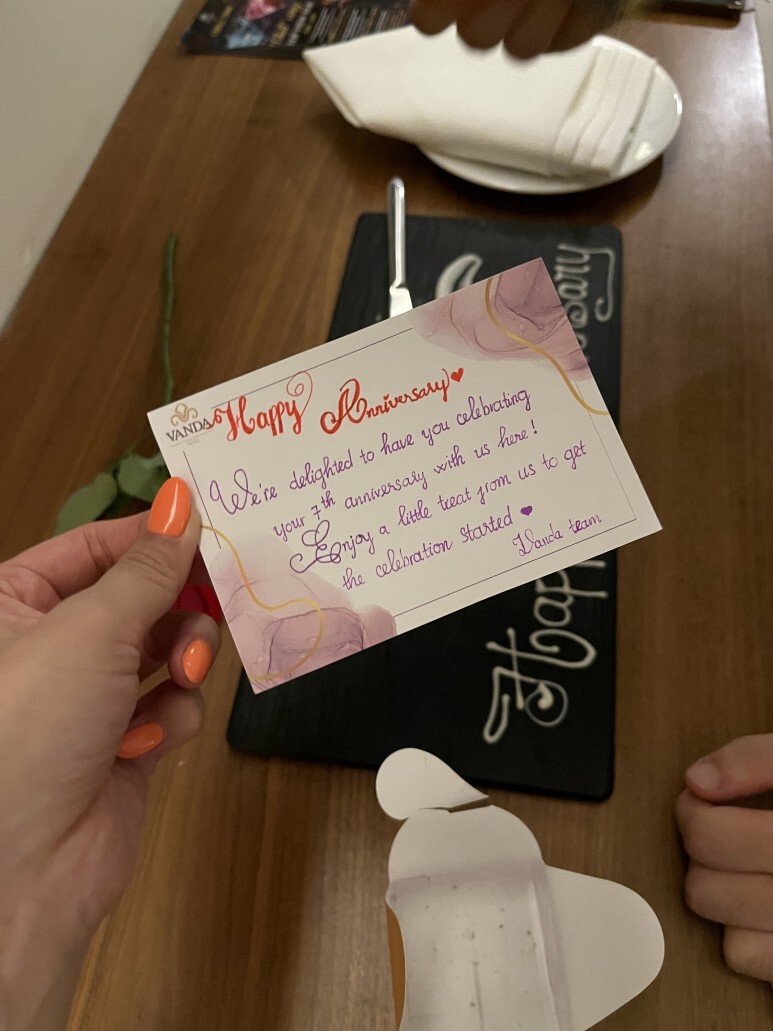 VANDA
Happy Anniversary
We're delighted to have you celebrating
your 7th anniversary with us here!
Enjoy a little treat from us to get
the celebration started
Vanda team
Happ
sary